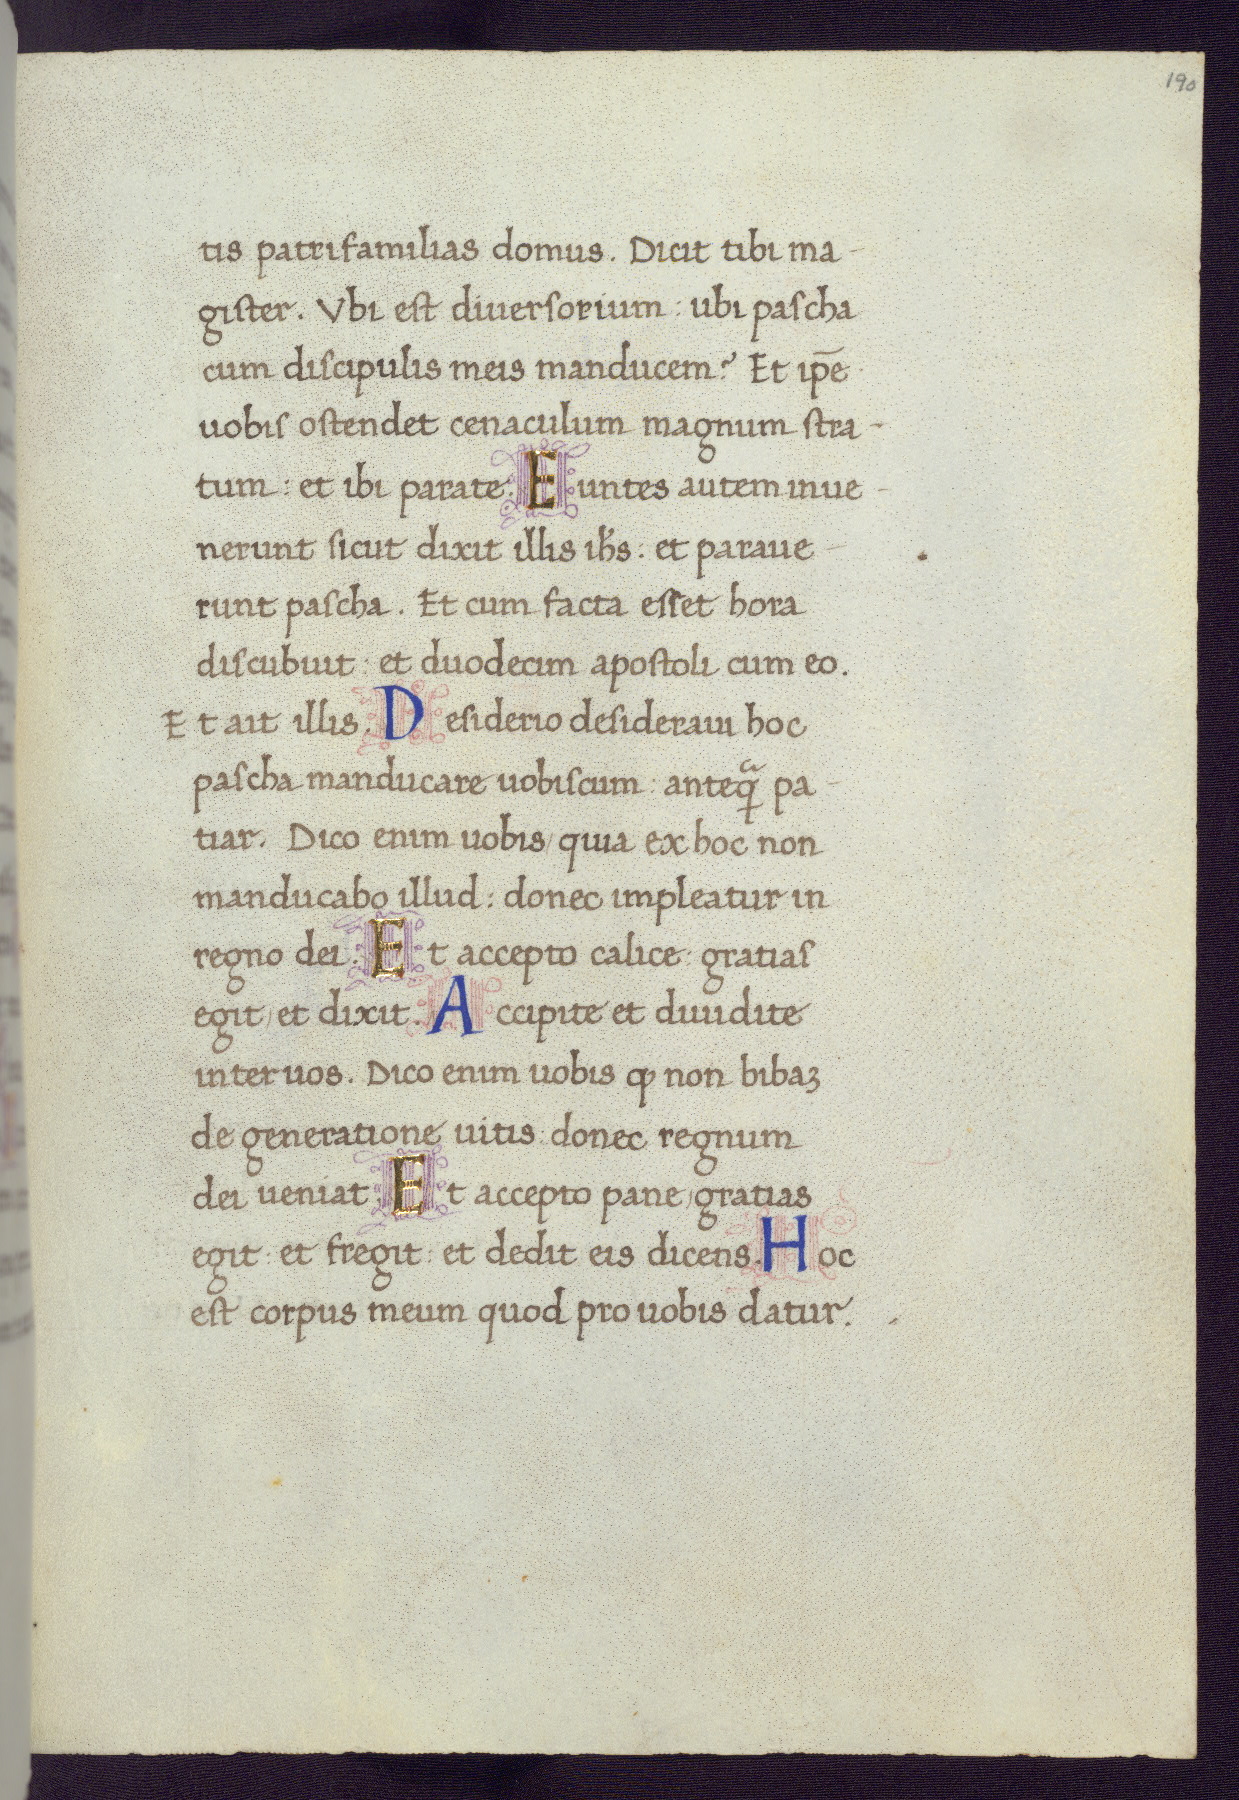 190
tis patrifamilias domus. Dicit tibi ma-
gister. Vbi est diuersorium: ubi pascha
cum discipulis meis manducem? Et ip̄e
uobis ostendet cenaculum magnum stra-
tum: et ibi parate. Euntes autem inue-
nerunt sicut dixit illis ih̄s: et paraue-
runt pascha. Et cum facta esset hora
discubuit: et duodecim apostoli cum eo.
Et ait illis. Desiderio desideraui hoc
pascha manducare uobiscum: anteqᷓ pa-
tiar. Dico enim uobis/ quia ex hoc non
manducabo illud: donec impleatur in
regno dei. Et accepto calice: gratias
egit/ et dixit. Accipite et diuidite
inter uos. Dico enim uobis ꝙ non bibaꝫ
de generatione uitis: donec regnum
dei ueniat. Et accepto pane/ gratias
egit: et fregit: et dedit eis dicens. Hoc
est corpus meum quod pro uobis datur.